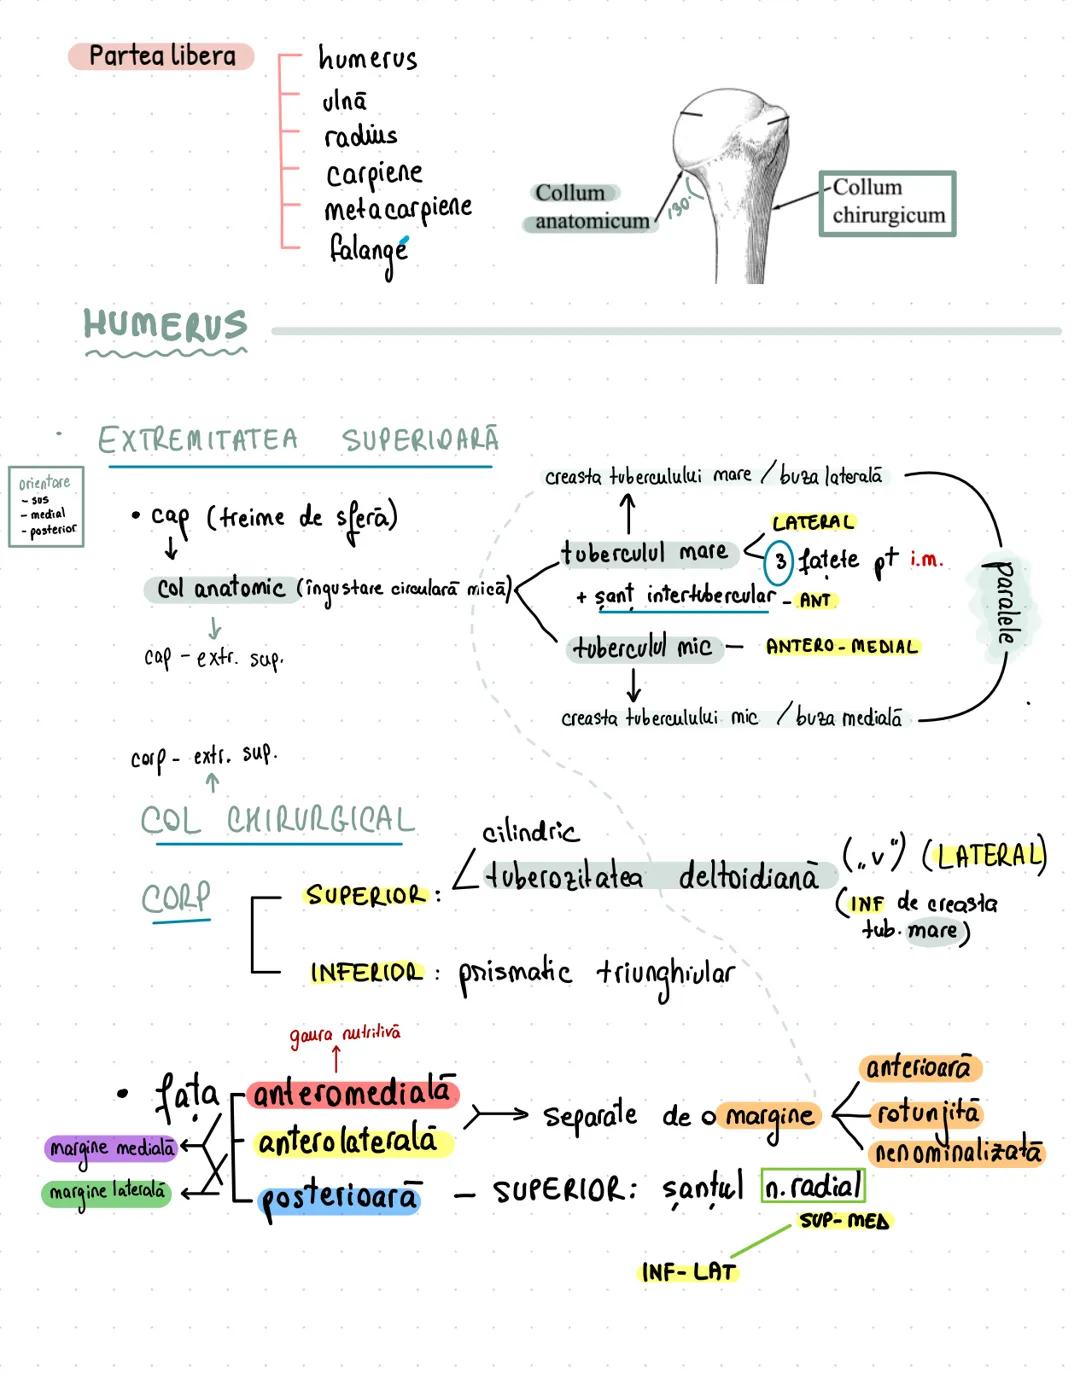 Partea libera
humerus
ulnă
radius
carpiene
metacarpiene
falange
Collum
anatomicum
130°
Collum
chirurgicum
HUMERUS
EXTREMITATEA SUPERIOARĂ
orientare
- sus
- medial
- posterior
• cap (treime de sferă)
col anatomic (îngustare circulară mică)
cap - extr. sup.
creasta tuberculului mare / buza laterală
tuberculul mare
LATERAL
3 fațete pt i.m.
+ șanț intertubercular - ANT
tuberculul mic - ANTERO-MEDIAL
creasta tuberculului mic / buza medială
paralele
corp - extr. sup.
COL CHIRURGICAL
CORP
SUPERIOR:
cilindric
tuberozitatea deltoidiană („v") (LATERAL)
(INF de creasta
tub. mare)
INFERIOR: prismatic triunghiular
gaura nutritivă
• fața
anteromedială
anterolaterală
posterioară
margine medială
margine laterală
separate de o margine
anterioară
rotunjită
nenominalizată
- SUPERIOR: șanțul n. radial
SUP-MED
INF-LAT